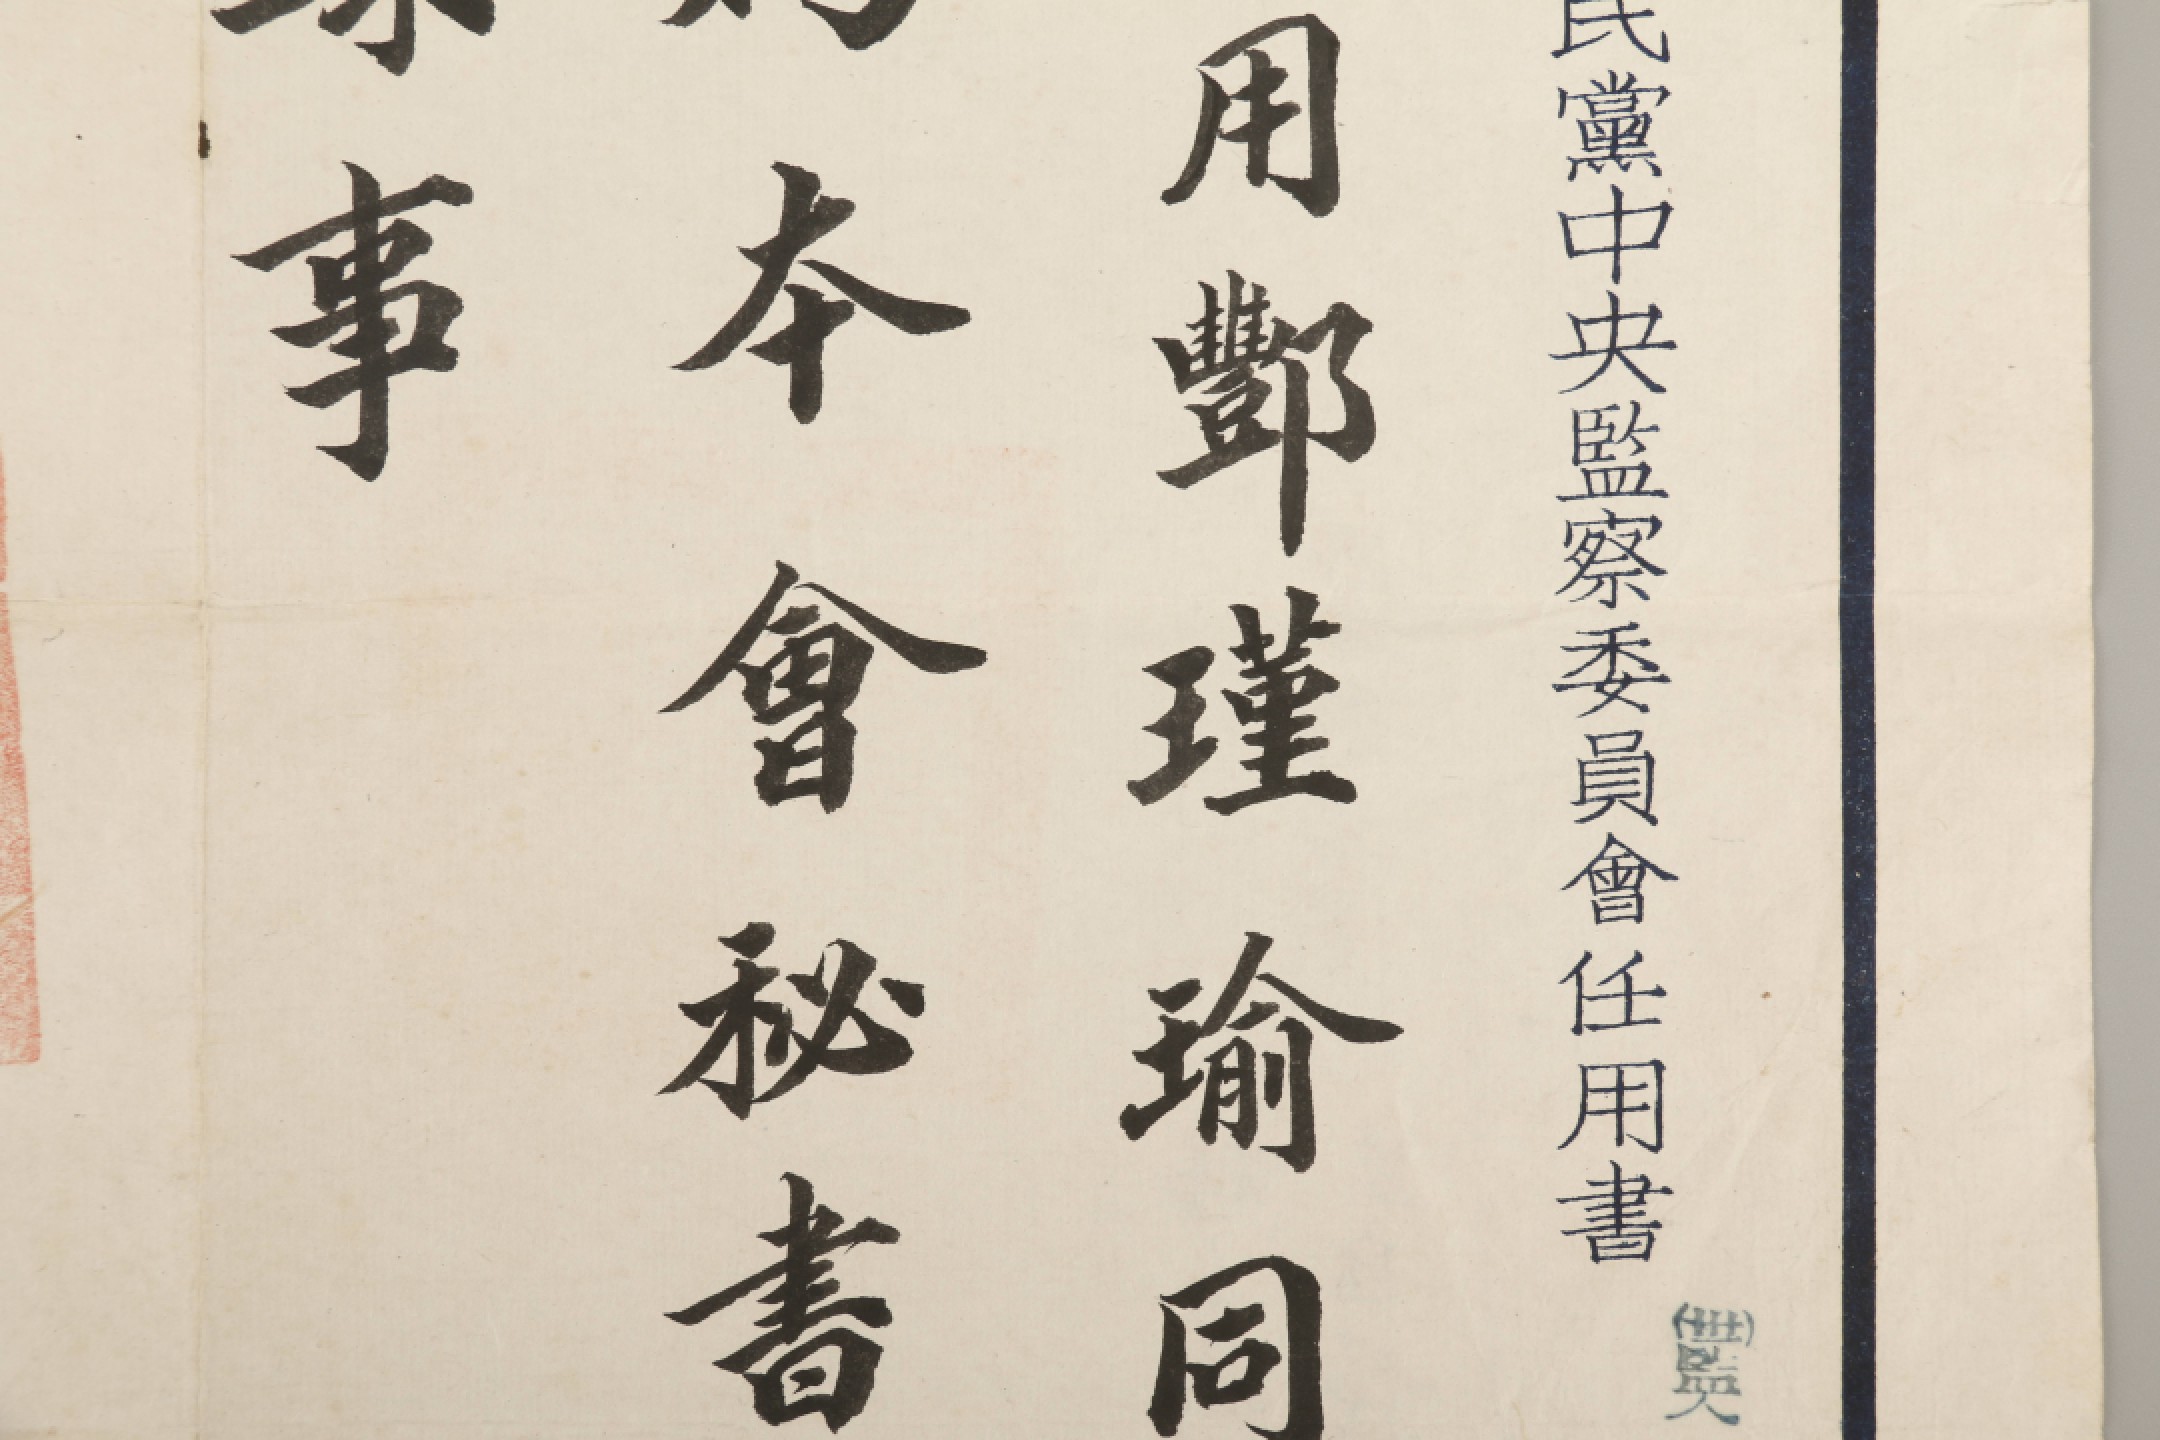 民黨中央監察委員會任用書
(卅)監人
用酆瑾瑜同
本會秘書
事